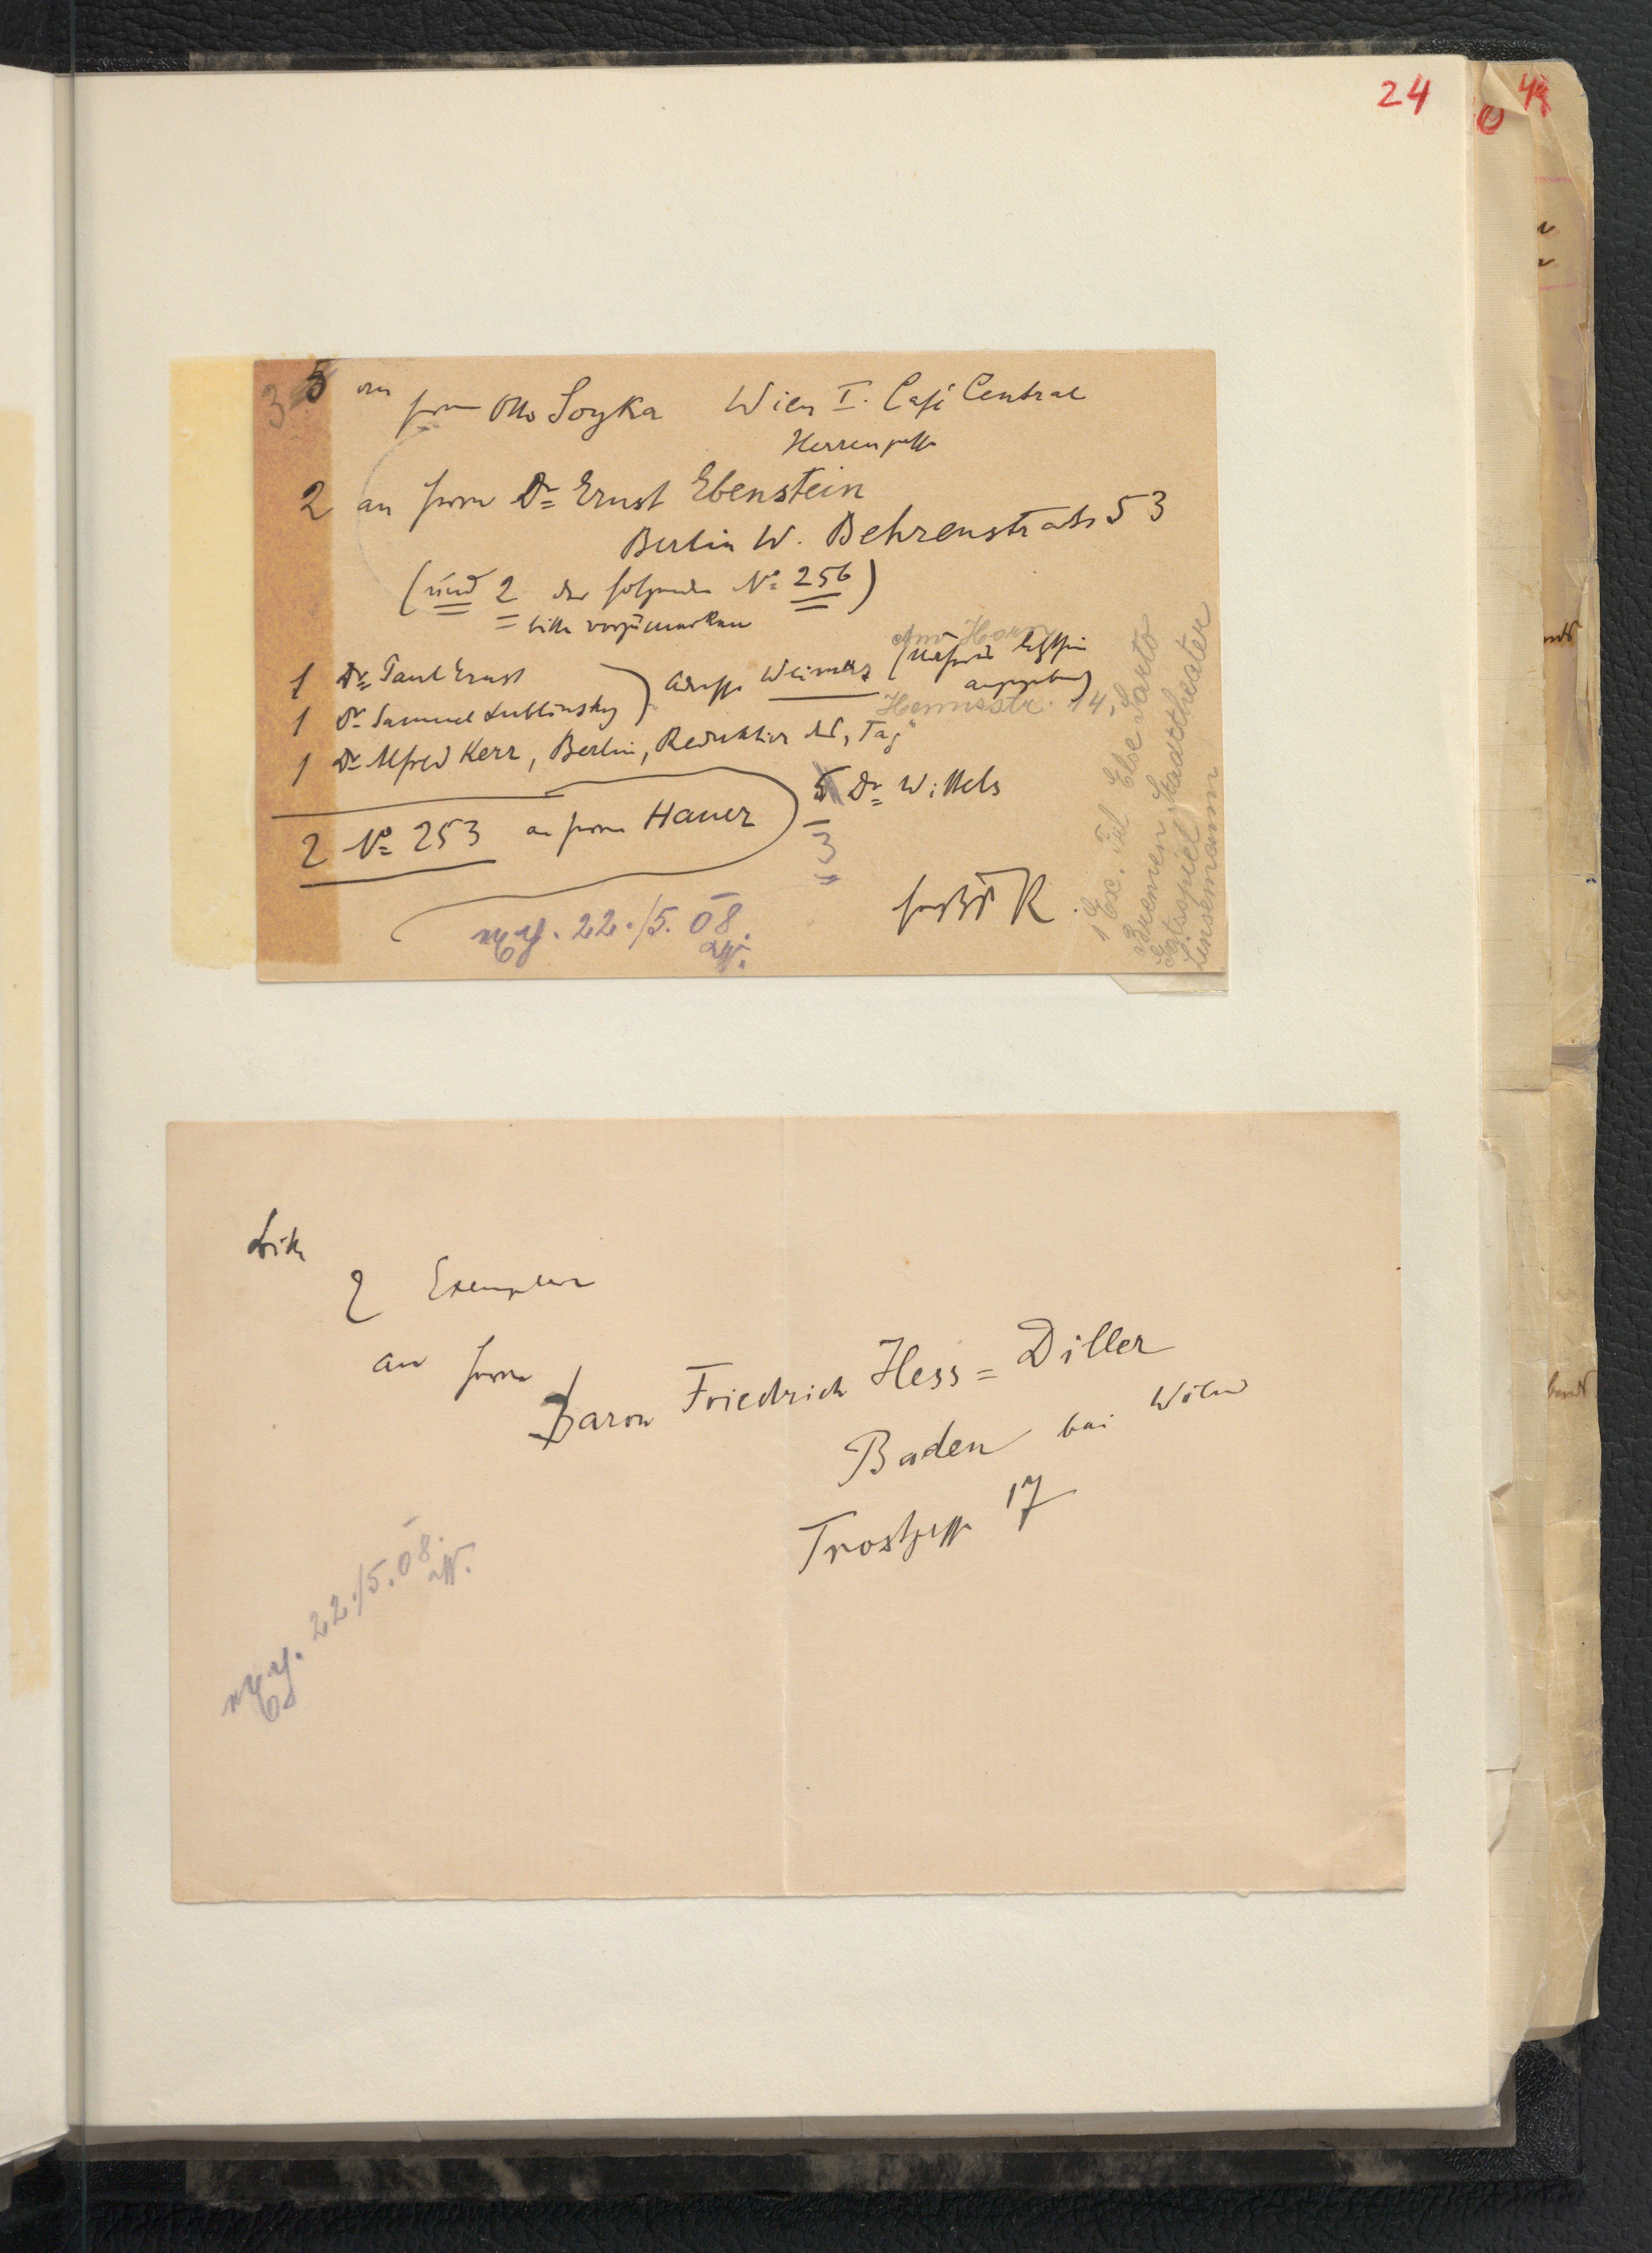 24
3 5 an Herrn Otto Soyka Wien I. Café Central
Herrengasse
2 an Herrn Dr Ernst Ebenstein
Berlin W. Behrenstraße 53
(und 2 der folgenden No 256)
bitte vorzumerken
1 Dr Paul Ernst
1 Dr Samuel Lublinsky
) Adresse Weimar (
letzthin
angegeben)
Am Horn
Hennsstr. 14,
1 Dr Alfred Kerr, Berlin, Redaktion des „Tag“
5 Dr Wittels
3
2 No 253 an Herrn Hauer
22./5. 08.
K.
1 Ex. Frl Else Sarto
Bremen Stadttheater
Gastspiel
Linsemann
bitte
2 Exemplare
an Herrn
Baron Friedrich Hess=Diller
Baden bei Wien
Trostgasse 17
22./5. 08.